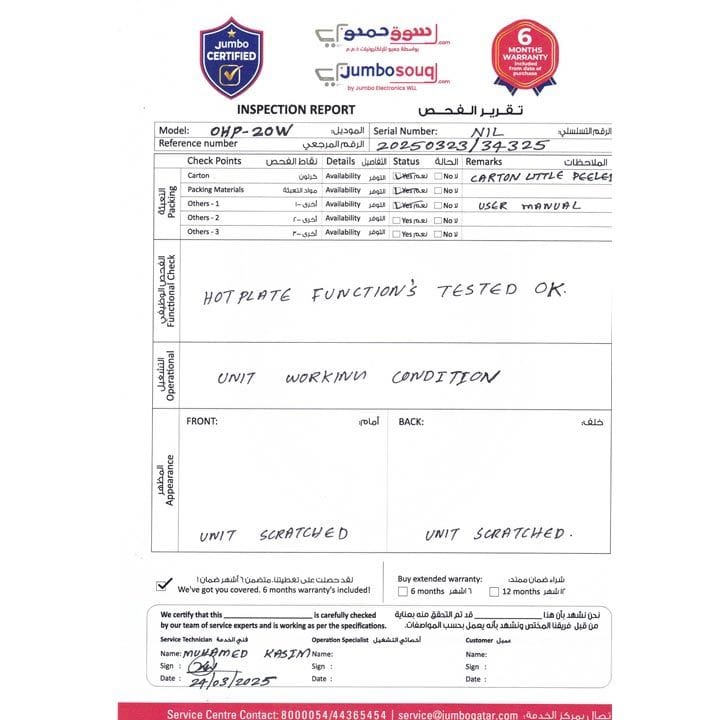 Jumbo
CERTIFIED
سوق جمبو.com
بواسطة جمبو للإلكترونيات ذ.م.م
Jumbosouq.com
by Jumbo Electronics WLL
6
MONTHS
WARRANTY
Included
from date of
purchase
INSPECTION REPORT تقرير الفحص
Model: OHP-20W الموديل: Serial Number: NIL الرقم التسلسلي:
Reference number الرقم المرجعي 20250323/34325
Check Points نقاط الفحص Details التفاصيل Status الحالة Remarks الملاحظات
التعبئة
Packing
Carton كرتون Availability التوفر Yes نعم No لا CARTON LITTLE PEELED
Packing Materials مواد التعبئة Availability التوفر Yes نعم No لا
Others - 1 أخرى -١ Availability التوفر Yes نعم No لا USER MANUAL
Others - 2 أخرى -٢ Availability التوفر Yes نعم No لا
Others - 3 أخرى -٣ Availability التوفر Yes نعم No لا
الفحص الوظيفي
Functional Check
HOTPLATE FUNCTION'S TESTED OK.
التشغيل
Operational
UNIT WORKINN CONDITION
المظهر
Appearance
FRONT: أمام: BACK: خلف:
UNIT SCRATCHED UNIT SCRATCHED.
لقد حصلت على تغطيتنا. متضمن ٦ أشهر ضمان!
We've got you covered. 6 months warranty's included!
Buy extended warranty: شراء ضمان ممتد:
6 months ٦ أشهر 12 months ١٢ شهر
We certify that this ____________ is carefully checked
by our team of service experts and is working as per the specifications.
نحن نشهد بأن هذا ____________ قد تم التحقق منه بعناية
من قبل فريقنا المختص ونشهد بأنه يعمل بحسب المواصفات.
Service Technician فني الخدمة Operation Specialist أخصائي التشغيل Customer عميل
Name: MUHAMED KASIM Name: Name:
Sign : Sign : Sign :
Date : 24/03/2025 Date : Date :
Service Centre Contact: 8000054/44365454 | service@jumboqatar.com اتصال بمركز الخدمة: